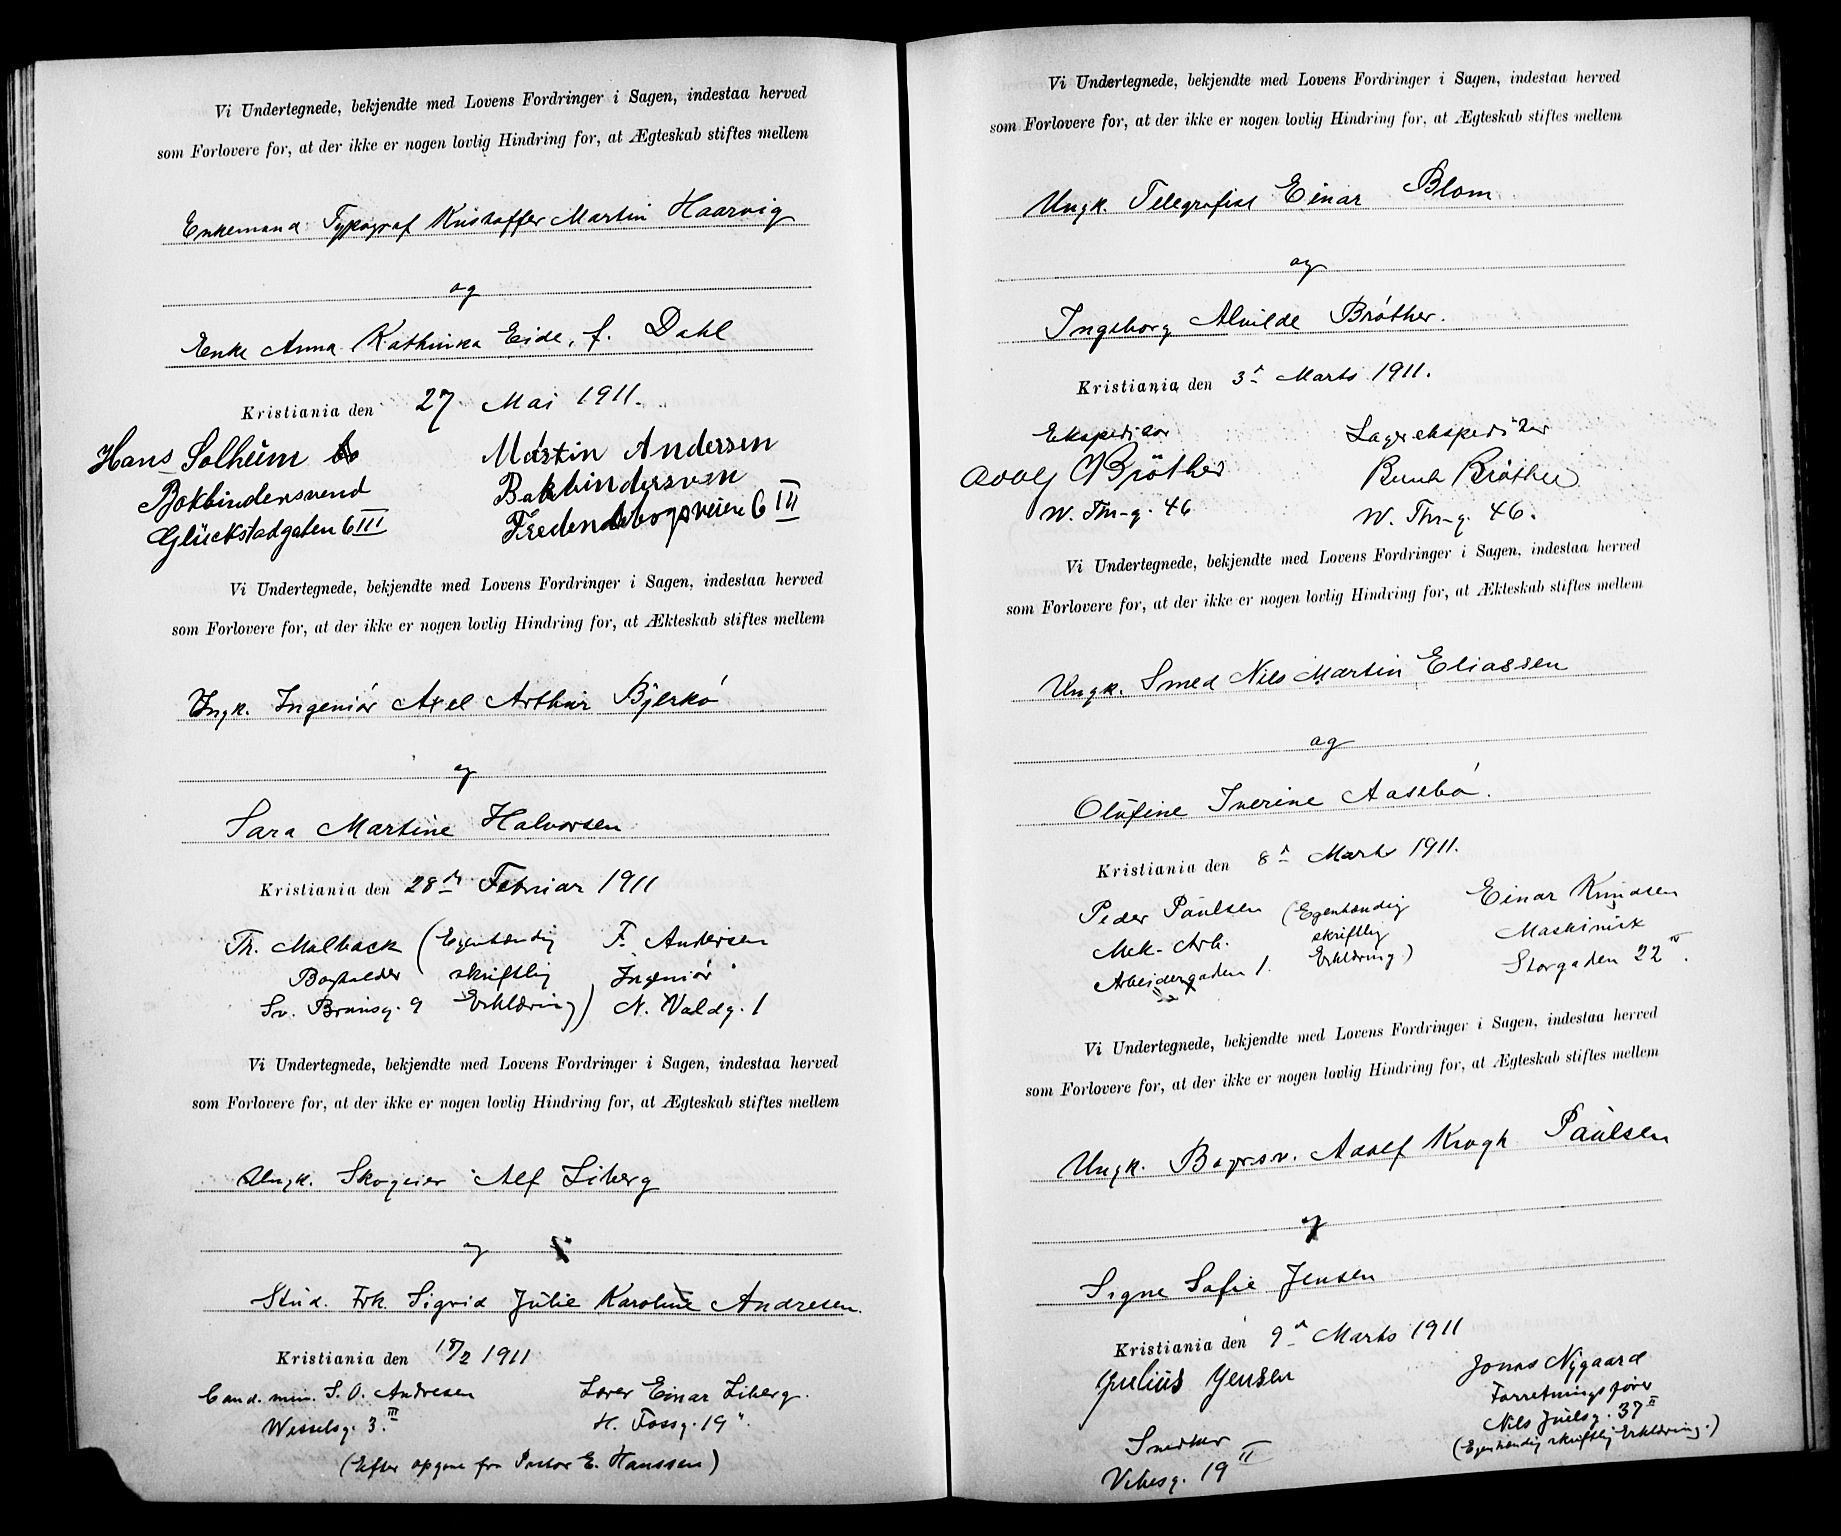 Vi Undertegnede, bekjendte med Lovens Fordringer i Sagen, indestaa herved
som Forlovere for, at der ikke er nogen lovlig Hindring for, at Ægteskab stiftes mellem
Enkemand Typograf Kristoffer Martin Haarvig
og
Enke Anna Kathinka Eide, f. Dahl
Kristiania den 27 Mai 1911.
Hans Solheim Martin Andersen
Bokbindersvend Bokbindersven
Glückstadgaten 6 III Fredensborgsveien 6 III
Vi Undertegnede, bekjendte med Lovens Fordringer i Sagen, indestaa herved
som Forlovere for, at der ikke er nogen lovlig Hindring for, at Ækteskab stiftes mellem
Ungk. Ingeniør Axel Arthur Bjerkø
og
Sara Martine Halvorsen
Kristiania den 28de Februar 1911
Th. Malback (Egenhændig F. Andersen
Bogholder skriftlig Ingeniør
Sv. Brunsg. 9 Erklæring) N. Valdg. 1
Vi Undertegnede, bekjendte med Lovens Fordringer i Sagen, indestaa herved
som Forlovere for, at der ikke er nogen lovlig Hindring for, at Ægteskab stiftes mellem
Ungk. Skogeier Alf Liberg
og
Stud. Frk. Sigrid Julie Karoline Andresen.
Kristiania den 18/2 1911
Cand. min. S. O. Andresen Lærer Einar Liberg.
Wesselsg. 3 III H. Fossg. 19
(Efter opgave fra Pastor E. Hanssen)
Vi Undertegnede, bekjendte med Lovens Fordringer i Sagen, indestaa herved
som Forlovere for, at der ikke er nogen lovlig Hindring for, at Ægteskab stiftes mellem
Ungk. Telegrafist Einar Blom
og
Ingeborg Alvilde Bröther.
Kristiania den 3d Marts 1911.
Ekspeditør Lagerekspeditør
Adolf Bröther Bernh Bröther
W. Thr-g. 46 W. Thr-g. 46.
Vi Undertegnede, bekjendte med Lovens Fordringer i Sagen, indestaa herved
som Forlovere for, at der ikke er nogen lovlig Hindring for, at Ækteskab stiftes mellem
Ungk. Smed Nils Martin Eliassen
og
Olufine Iverine Aasebø.
Kristiania den 8d Marts 1911.
Peder Paulsen (Egenhændig Einar Knudsen
Mek. Arb. skriftlig Maskinist
Arbeidergaden 1. Erklæring) Storgaden 22 IV.
Vi Undertegnede, bekjendte med Lovens Fordringer i Sagen, indestaa herved
som Forlovere for, at der ikke er nogen lovlig Hindring for, at Ægteskab stiftes mellem
Ungk. Bagersv. Adolf Krogh Paulsen
og
Signe Sofie Jensen
Kristiania den 9d Marts 1911
Julius Jensen Jonas Nygaard
Snedker Forretningsfører
Vibesg. 19 II Nils Juelsg. 37 II
(Egenhændig skriftlig Erklæring.)